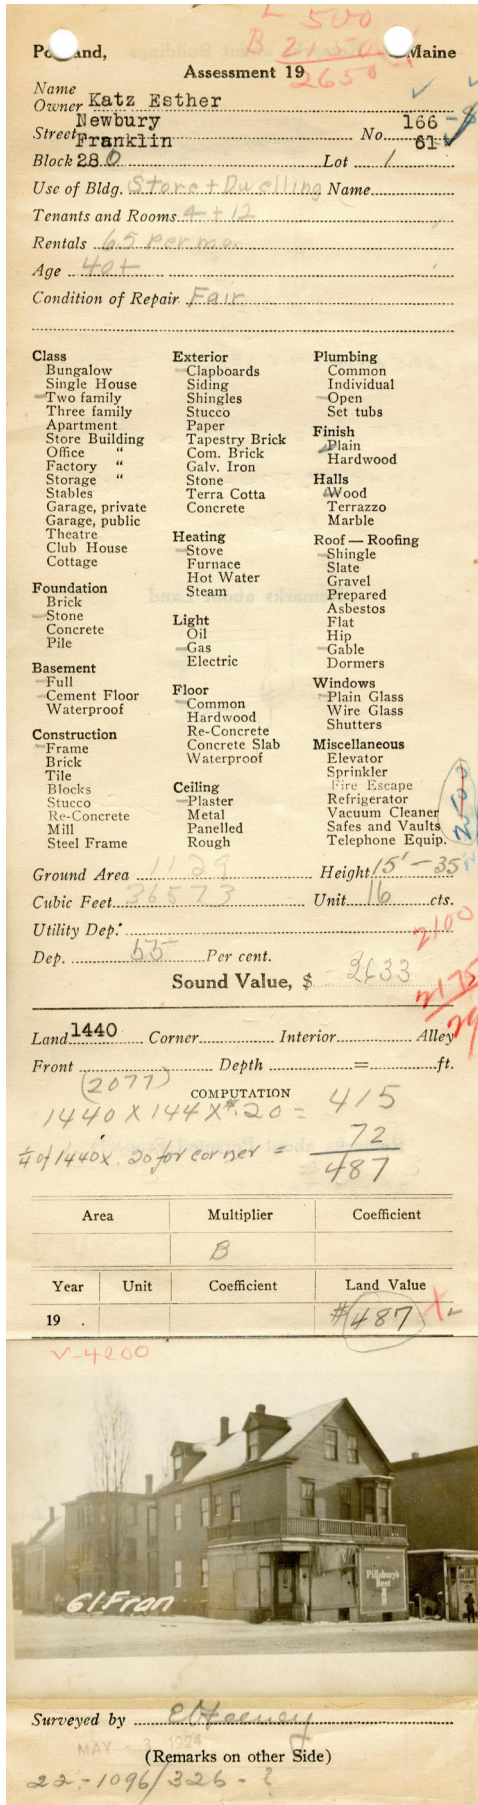 L 500
B 2150
2650
Portland, Maine
Assessment 19
Name
Owner Katz Esther
Newbury 166
Street Franklin No. 61
Block 280 Lot 1
Use of Bldg. Store + Dwelling Name
Tenants and Rooms 4 + 12
Rentals 65 per mo.
Age 40+
Condition of Repair Fair
Class
Bungalow
Single House
Two family
Three family
Apartment
Store Building
Office "
Factory "
Storage "
Stables
Garage, private
Garage, public
Theatre
Club House
Cottage
Foundation
Brick
Stone
Concrete
Pile
Basement
Full
Cement Floor
Waterproof
Construction
Frame
Brick
Tile
Blocks
Stucco
Re-Concrete
Mill
Steel Frame
Exterior
Clapboards
Siding
Shingles
Stucco
Paper
Tapestry Brick
Com. Brick
Galv. Iron
Stone
Terra Cotta
Concrete
Heating
Stove
Furnace
Hot Water
Steam
Light
Oil
Gas
Electric
Floor
Common
Hardwood
Re-Concrete
Concrete Slab
Waterproof
Ceiling
Plaster
Metal
Panelled
Rough
Plumbing
Common
Individual
Open
Set tubs
Finish
Plain
Hardwood
Halls
Wood
Terrazzo
Marble
Roof — Roofing
Shingle
Slate
Gravel
Prepared
Asbestos
Flat
Hip
Gable
Dormers
Windows
Plain Glass
Wire Glass
Shutters
Miscellaneous
Elevator
Sprinkler
Fire Escape
Refrigerator
Vacuum Cleaner
Safes and Vaults
Telephone Equip.
Ground Area 1129 Height 15' - 35
Cubic Feet 36573 Unit 16 cts.
Utility Dep.
2100
Dep. 55 Per cent.
Sound Value, $ 2633
2175
Land 1440 Corner Interior Alley
Front Depth = ft.
(2077)
COMPUTATION
1440 X 144 X $.20 = 415
1/4 of 1440 X .20 for corner = 72
487
Area Multiplier Coefficient
B
Year Unit Coefficient Land Value
19 . $487 X
V-4200
Pillsbury's
Best
61 Fran
Surveyed by
MAY - 3 1924
(Remarks on other Side)
22-1096/326-?